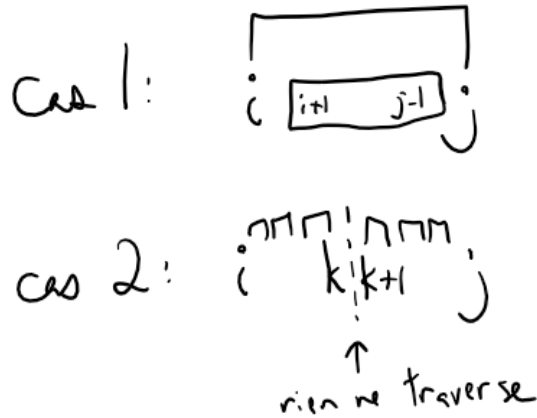 cas 1:
i i+1 j-1 j
cas 2:
i k k+1 j
rien ne traverse